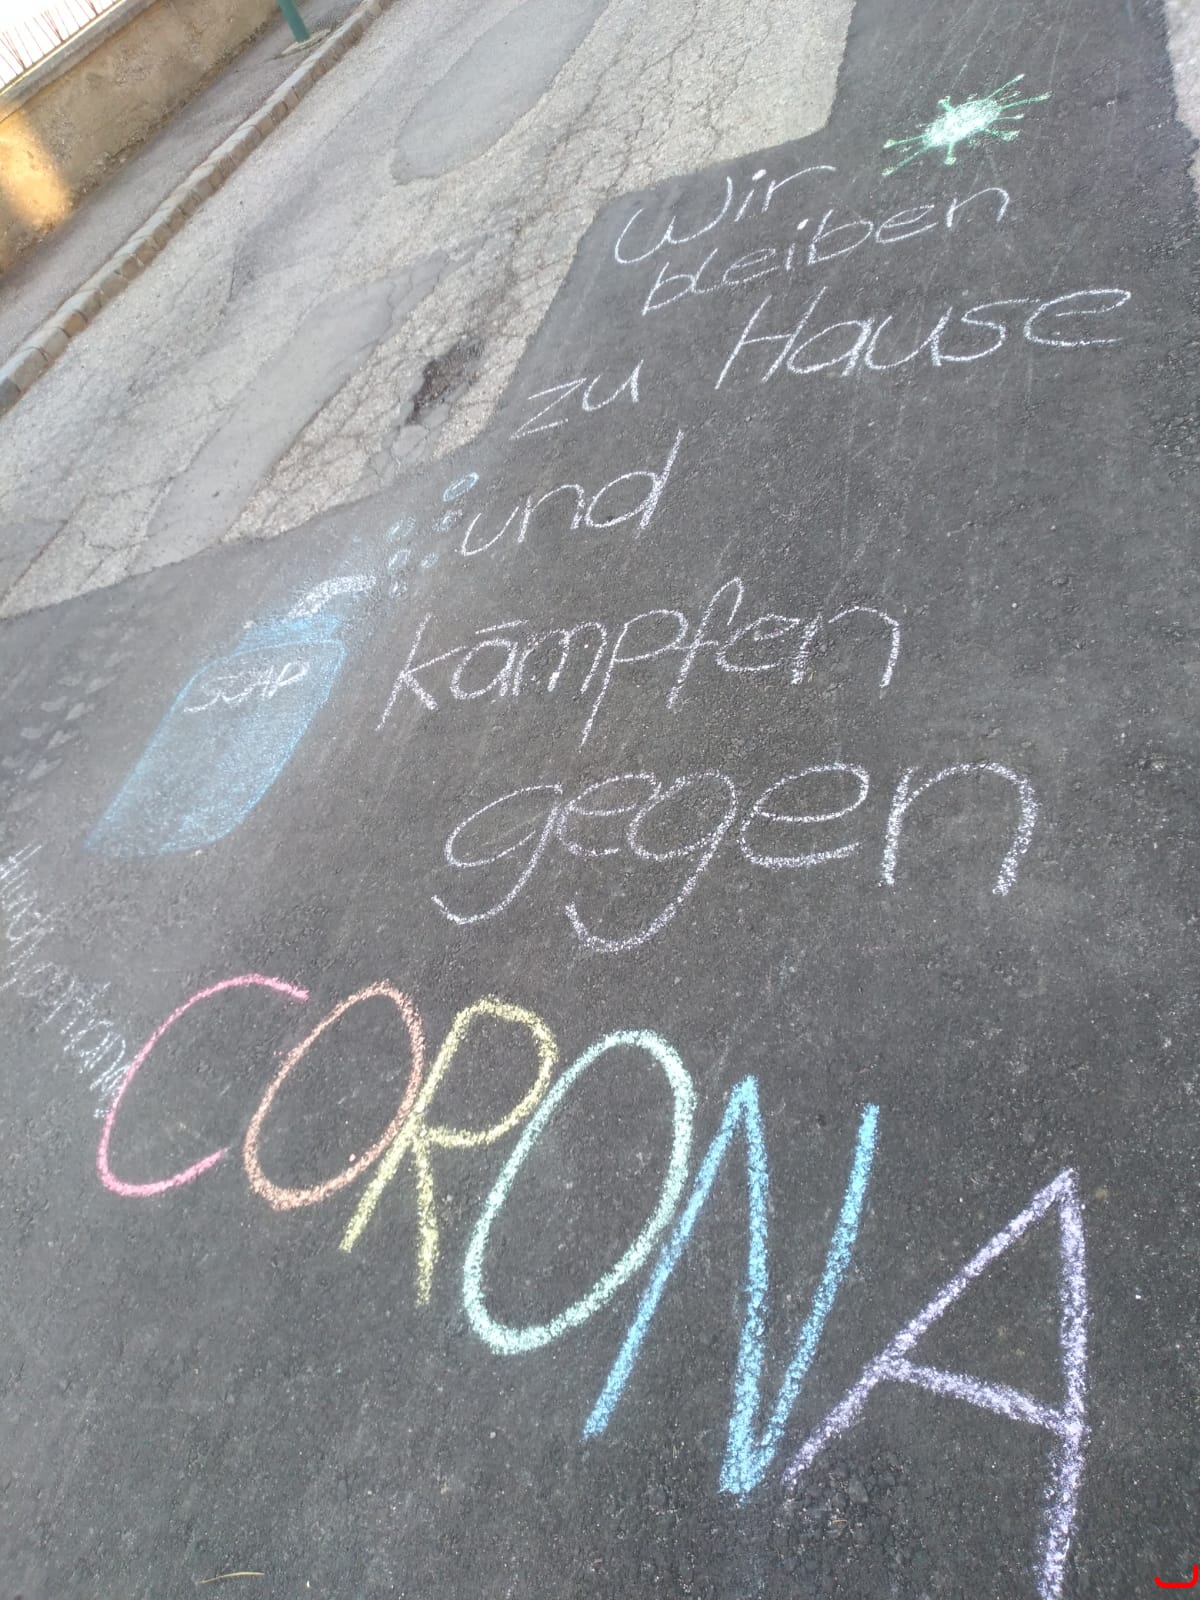 wir
bleiben
zu Hause
und
kämpfen
gegen
CORONA
SOAP